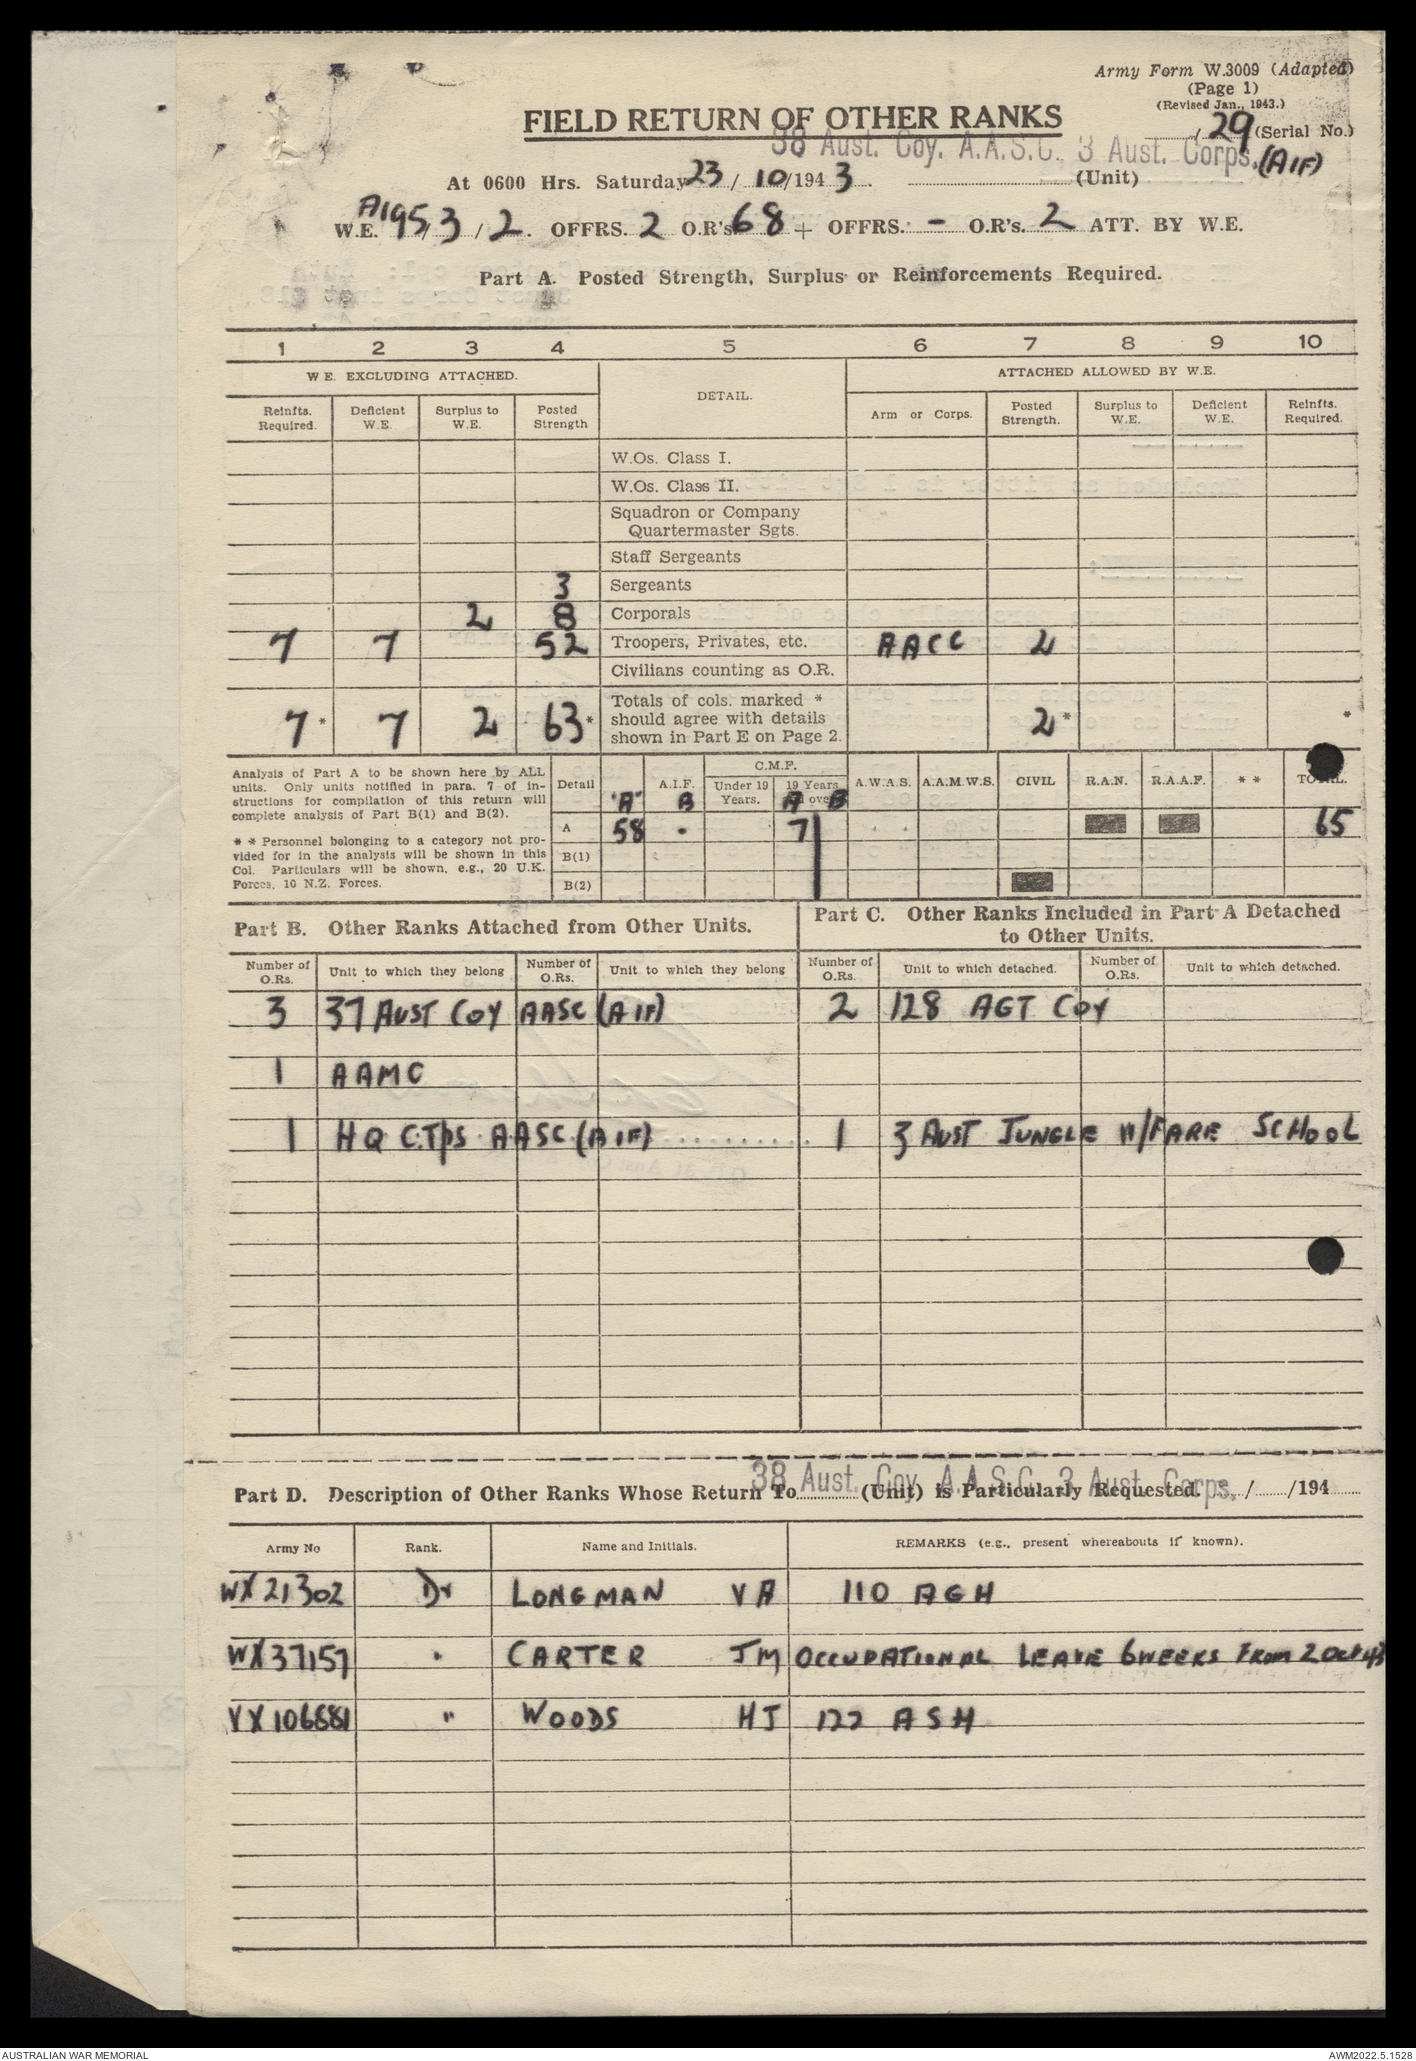 Army Form W.3009 (Adapted)
(Page 1)
(Revised Jan., 1943.)
FIELD RETURN OF OTHER RANKS
/ 29 (Serial No.)
38 Aust. Coy. A.A.S.C. 3 Aust. Corps. (AIF)
At 0600 Hrs. Saturday 23 / 10 /194 3 . (Unit)
W.E. A195/ 3 / 2 . OFFRS. 2 O.R's 68 + OFFRS. - O.R's. 2 ATT. BY W.E.
Part A. Posted Strength, Surplus or Reinforcements Required.
1 2 3 4 5 6 7 8 9 10
W E. EXCLUDING ATTACHED. DETAIL. ATTACHED ALLOWED BY W.E.
Reinfts. Required. Deficient W.E. Surplus to W.E. Posted Strength Arm or Corps. Posted Strength. Surplus to W.E. Deficient W.E. Reinfts. Required.
W.Os. Class I.
W.Os. Class II.
Squadron or Company
Quartermaster Sgts.
Staff Sergeants
3 Sergeants
2 8 Corporals
7 7 52 Troopers, Privates, etc. AACC 2
Civilians counting as O.R.
Totals of cols. marked *
7 * 7 2 63 * should agree with details 2 * *
shown in Part E on Page 2.
Analysis of Part A to be shown here by ALL
units. Only units notified in para. 7 of in-
structions for compilation of this return will
complete analysis of Part B(1) and B(2).
* * Personnel belonging to a category not pro-
vided for in the analysis will be shown in this
Col. Particulars will be shown, e.g., 20 U.K.
Forces, 10 N.Z. Forces.
Detail "A" A.I.F. B C.M.F. Under 19 Years. 19 Years over A B A.W.A.S. A.A.M.W.S. CIVIL R.A.N. R.A.A.F. * * TOTAL.
A 58 - 7 65
B(1)
B(2)
Part B. Other Ranks Attached from Other Units.
Part C. Other Ranks Included in Part A Detached
to Other Units.
Number of O.Rs. Unit to which they belong Number of O.Rs. Unit to which they belong Number of O.Rs. Unit to which detached. Number of O.Rs. Unit to which detached.
3 37 AUST COY AASC (AIF) 2 128 AGT COY
1 AAMC
1 HQ C.TPS AASC (AIF) 1 3 AUST JUNGLE W/FARE SCHOOL
38 Aust. Coy. A.A.S.C. 3 Aust. Corps.
Part D. Description of Other Ranks Whose Return To (Unit) is Particularly Requested. / /194
Army No Rank. Name and Initials. REMARKS (e.g., present whereabouts if known).
WX 21302 Dr LONGMAN VA 110 AGH
WX 37157 " CARTER JM OCCUPATIONAL LEAVE 6 WEEKS FROM 2 OCT 43
VX 106881 " WOODS HJ 122 ASH
AUSTRALIAN WAR MEMORIAL
AWM2022.5.1528